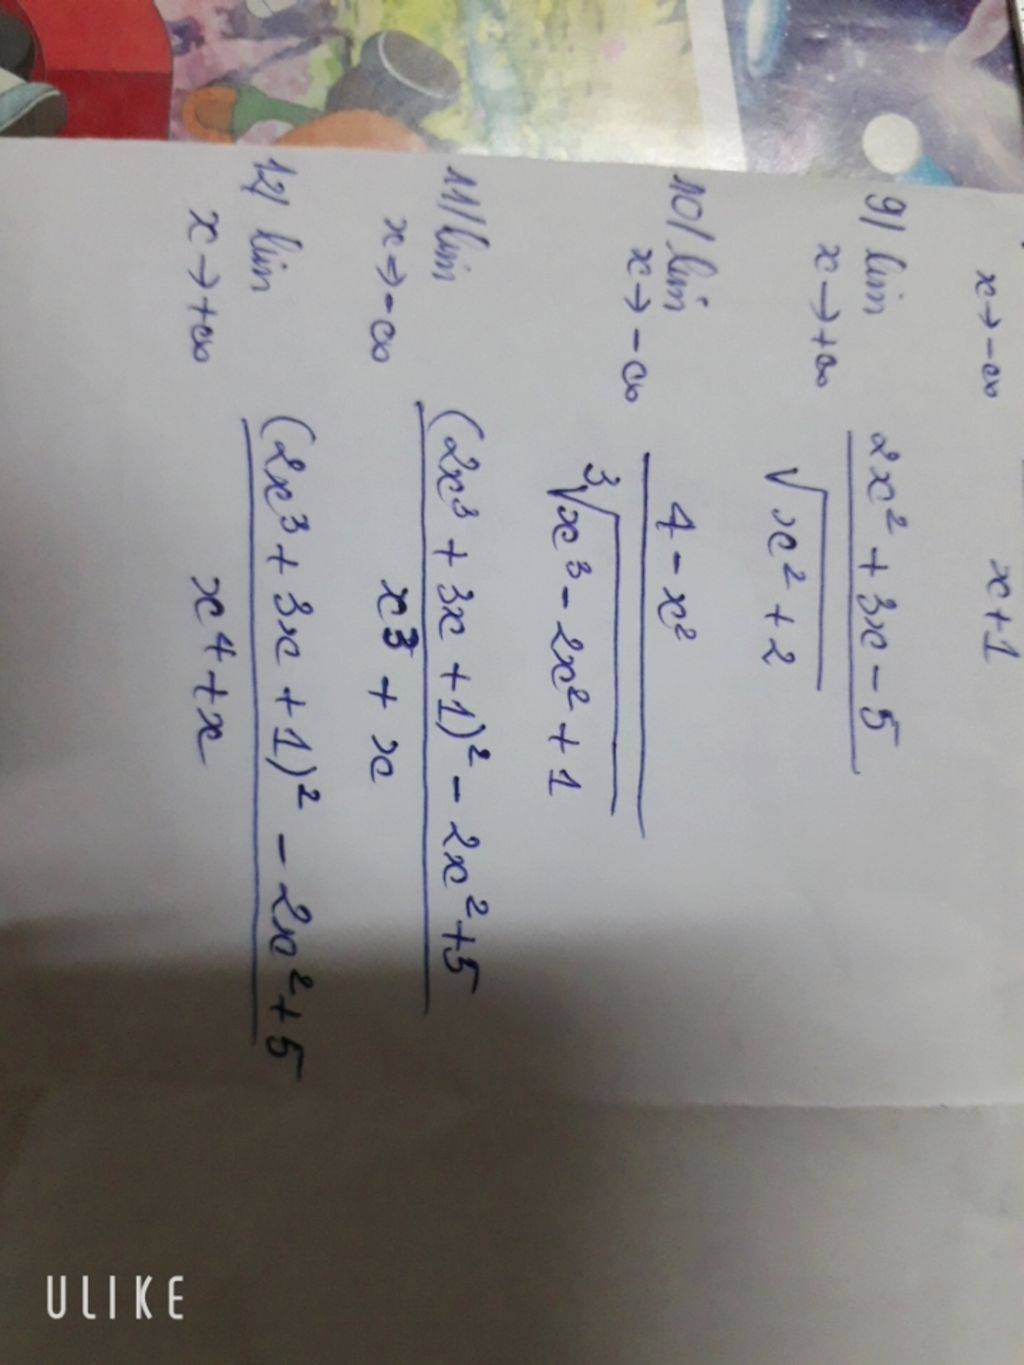 x+1
x→-∞
9/ lim 2x² + 3x - 5
x→+∞ √x² + 2
10/ lim 4 - x²
x→-∞ ³√x³ - 2x² + 1
11/ lim (2x³ + 3x + 1)² - 2x² + 5
x→-∞ x³ + x
12/ lim (2x³ + 3x + 1)² - 2x² + 5
x→+∞ x⁴ + x
ULIKE